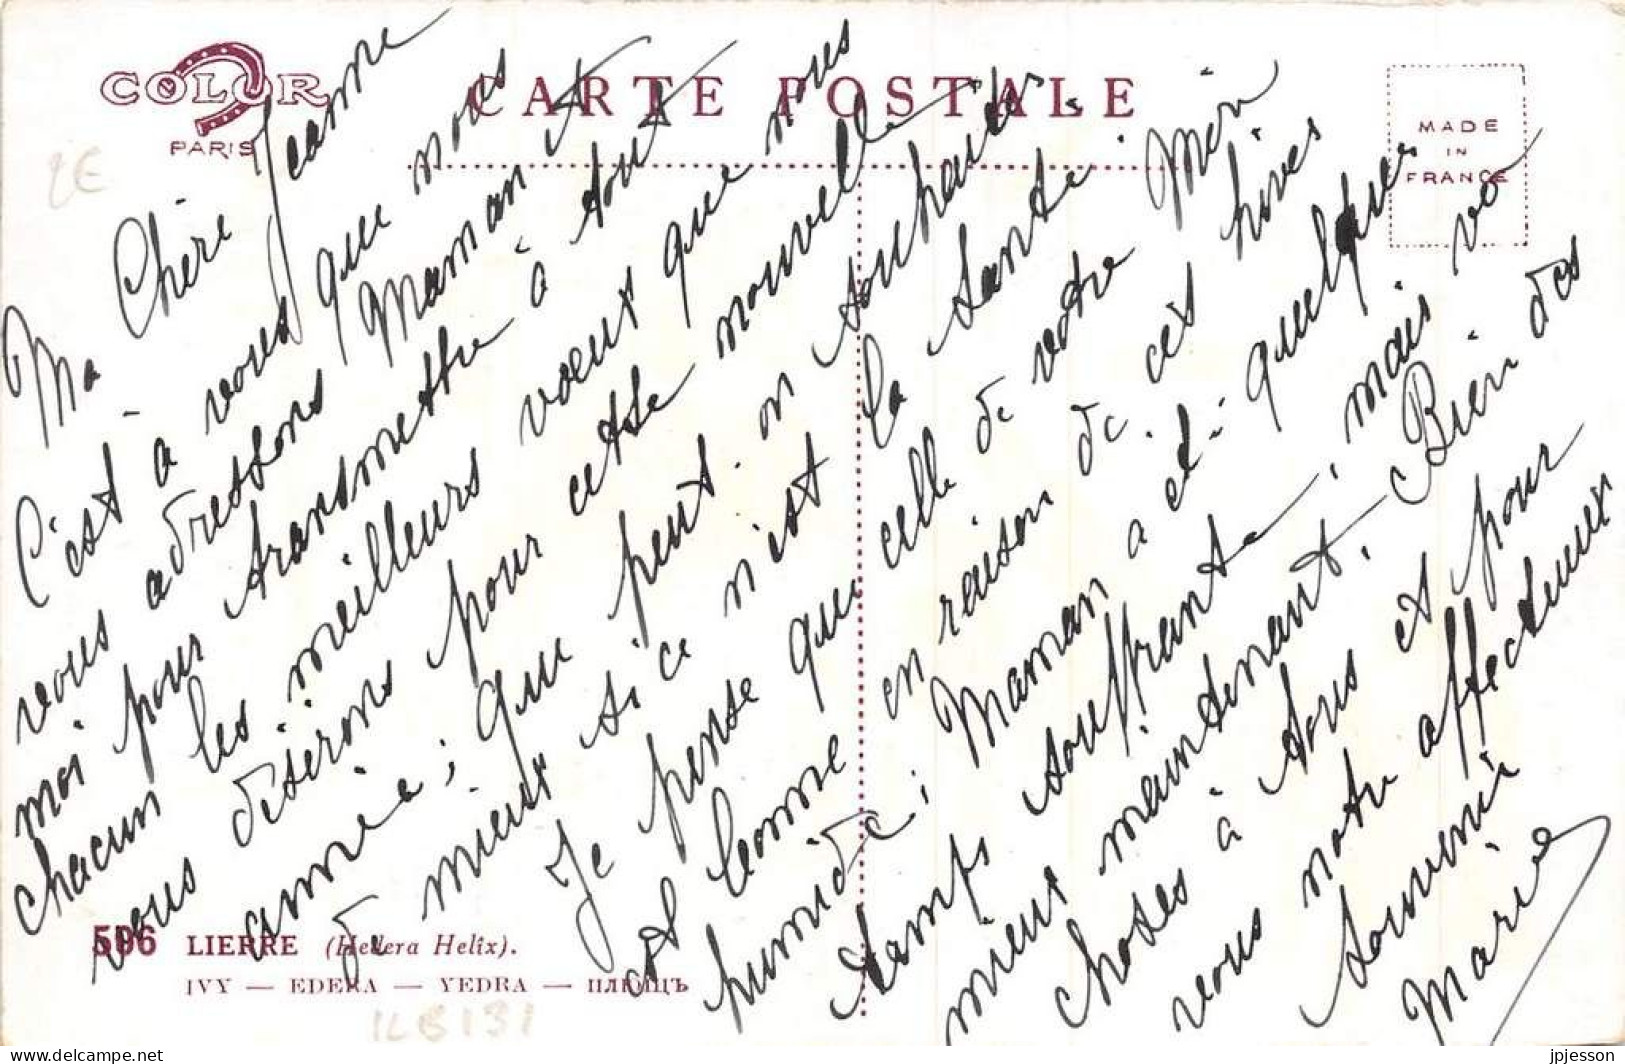 COLOR
PARIS
CARTE POSTALE
MADE
IN
FRANCE
Ma Chère Jeanne
C'est à vous que nous
vous adressons Maman et
moi pour transmettre à tout
chacun les meilleurs voeux que nous
vous désirons pour cette nouvelle
année ; que peut-on souhaiter
de mieux si ce n'est la santé.
Je pense que celle de votre Mère
est bonne en raison de ces hivers
humide ; Maman a été quelque
temps souffrante ; mais va
mieux maintenant. Bien des
choses à tous et pour
vous notre affectueux
souvenir
Marie
596 LIERRE (Hedera Helix).
IVY — EDERA — YEDRA — ПЛЮЩЪ
2€
ILB131
jpjesson
delcampe.net